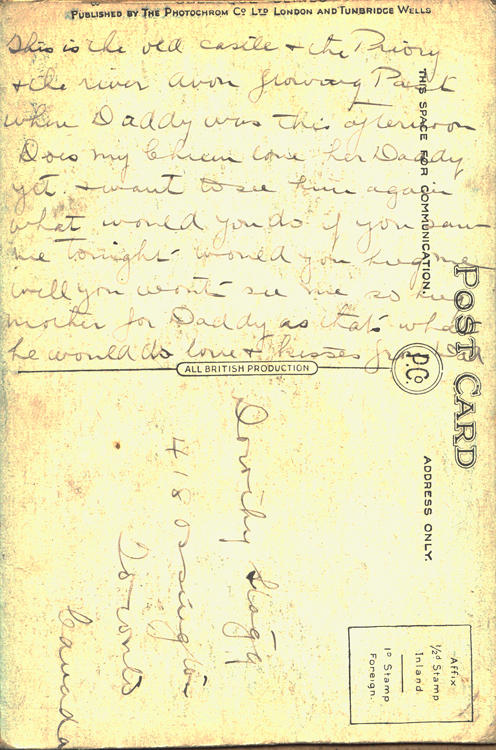 PUBLISHED BY THE PHOTOCHROM CO LTD LONDON AND TUNBRIDGE WELLS
This is the old castle & the Priory
& the river avon flowing Past
where Daddy was this afternoon
Does my love her Daddy
yet. & want to see him again
what would you do if you saw
me tonight would you hug me
will you wont see me so
mother for Daddy as thats what
he would do love & kisses from Dad
ALL BRITISH PRODUCTION
THIS SPACE FOR COMMUNICATION.
POST CARD
P.Co.
ADDRESS ONLY.
Affix
½d Stamp
Inland
1D Stamp
Foreign.
Dorothy
418 Ossington
Toronto
Canada